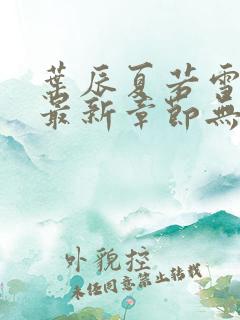 葉辰夏若雪
最新章節無
外貌控
未任同意禁止轉載